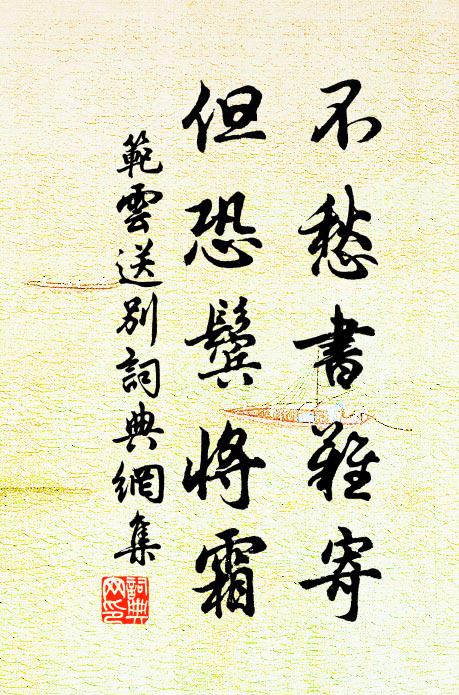 不愁書難寄
但恐鬢將霜
範雲送别詞典網集
詞典
网印